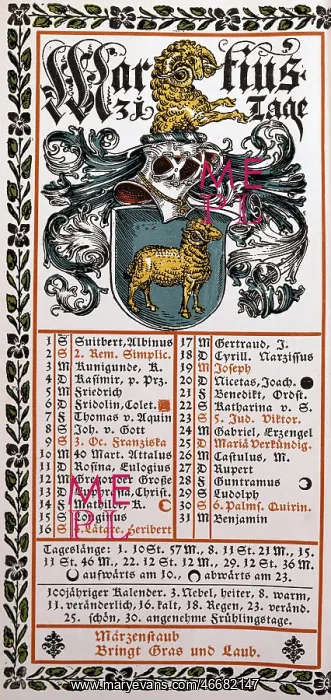 Martius
31 Tage
1 S Suitbert, Albinus
2 S 2. Rem. Simplic.
3 M Kunigunde, K.
4 D Kasimir, p. Prz.
5 M Friedrich
6 D Fridolin, Colet.
7 F Thomas v. Aquin
8 S Joh. v. Gott
9 S 3. Oc. Franziska
10 M 40 Mart. Attalus
11 D Rosina, Eulogius
12 M Große
13 D Christ.
14 F Mathilde K.
15 S Longinus
16 S 4. Lätare. Heribert
17 M Gertraud, J.
18 D Cyrill. Narzissus
19 M Joseph
20 D Nicetas, Joach.
21 F Benedikt, Ordst.
22 S Katharina v. S.
23 S 5. Jud. Viktor.
24 M Gabriel, Erzengel
25 D Mariä Verkündig.
26 M Castulus, M.
27 D Rupert
28 F Guntramus
29 S Ludolph
30 S 6. Palms. Quirin.
31 M Benjamin
Tageslänge: 1. 10 St. 57 M., 8. 11 St. 21 M., 15.
11 St. 46 M., 22. 12 St. 12 M., 29. 12 St. 36 M.
aufwärts am 10., abwärts am 23.
100jähriger Kalender. 3. Nebel, heiter, 8. warm,
11. veränderlich, 16. kalt, 18. Regen, 23. veränd.
25. schön, 30. angenehme Frühlingstage.
Märzenstaub
Bringt Gras und Laub.
ME
PL
ME
PL
www.maryevans.com/46682147